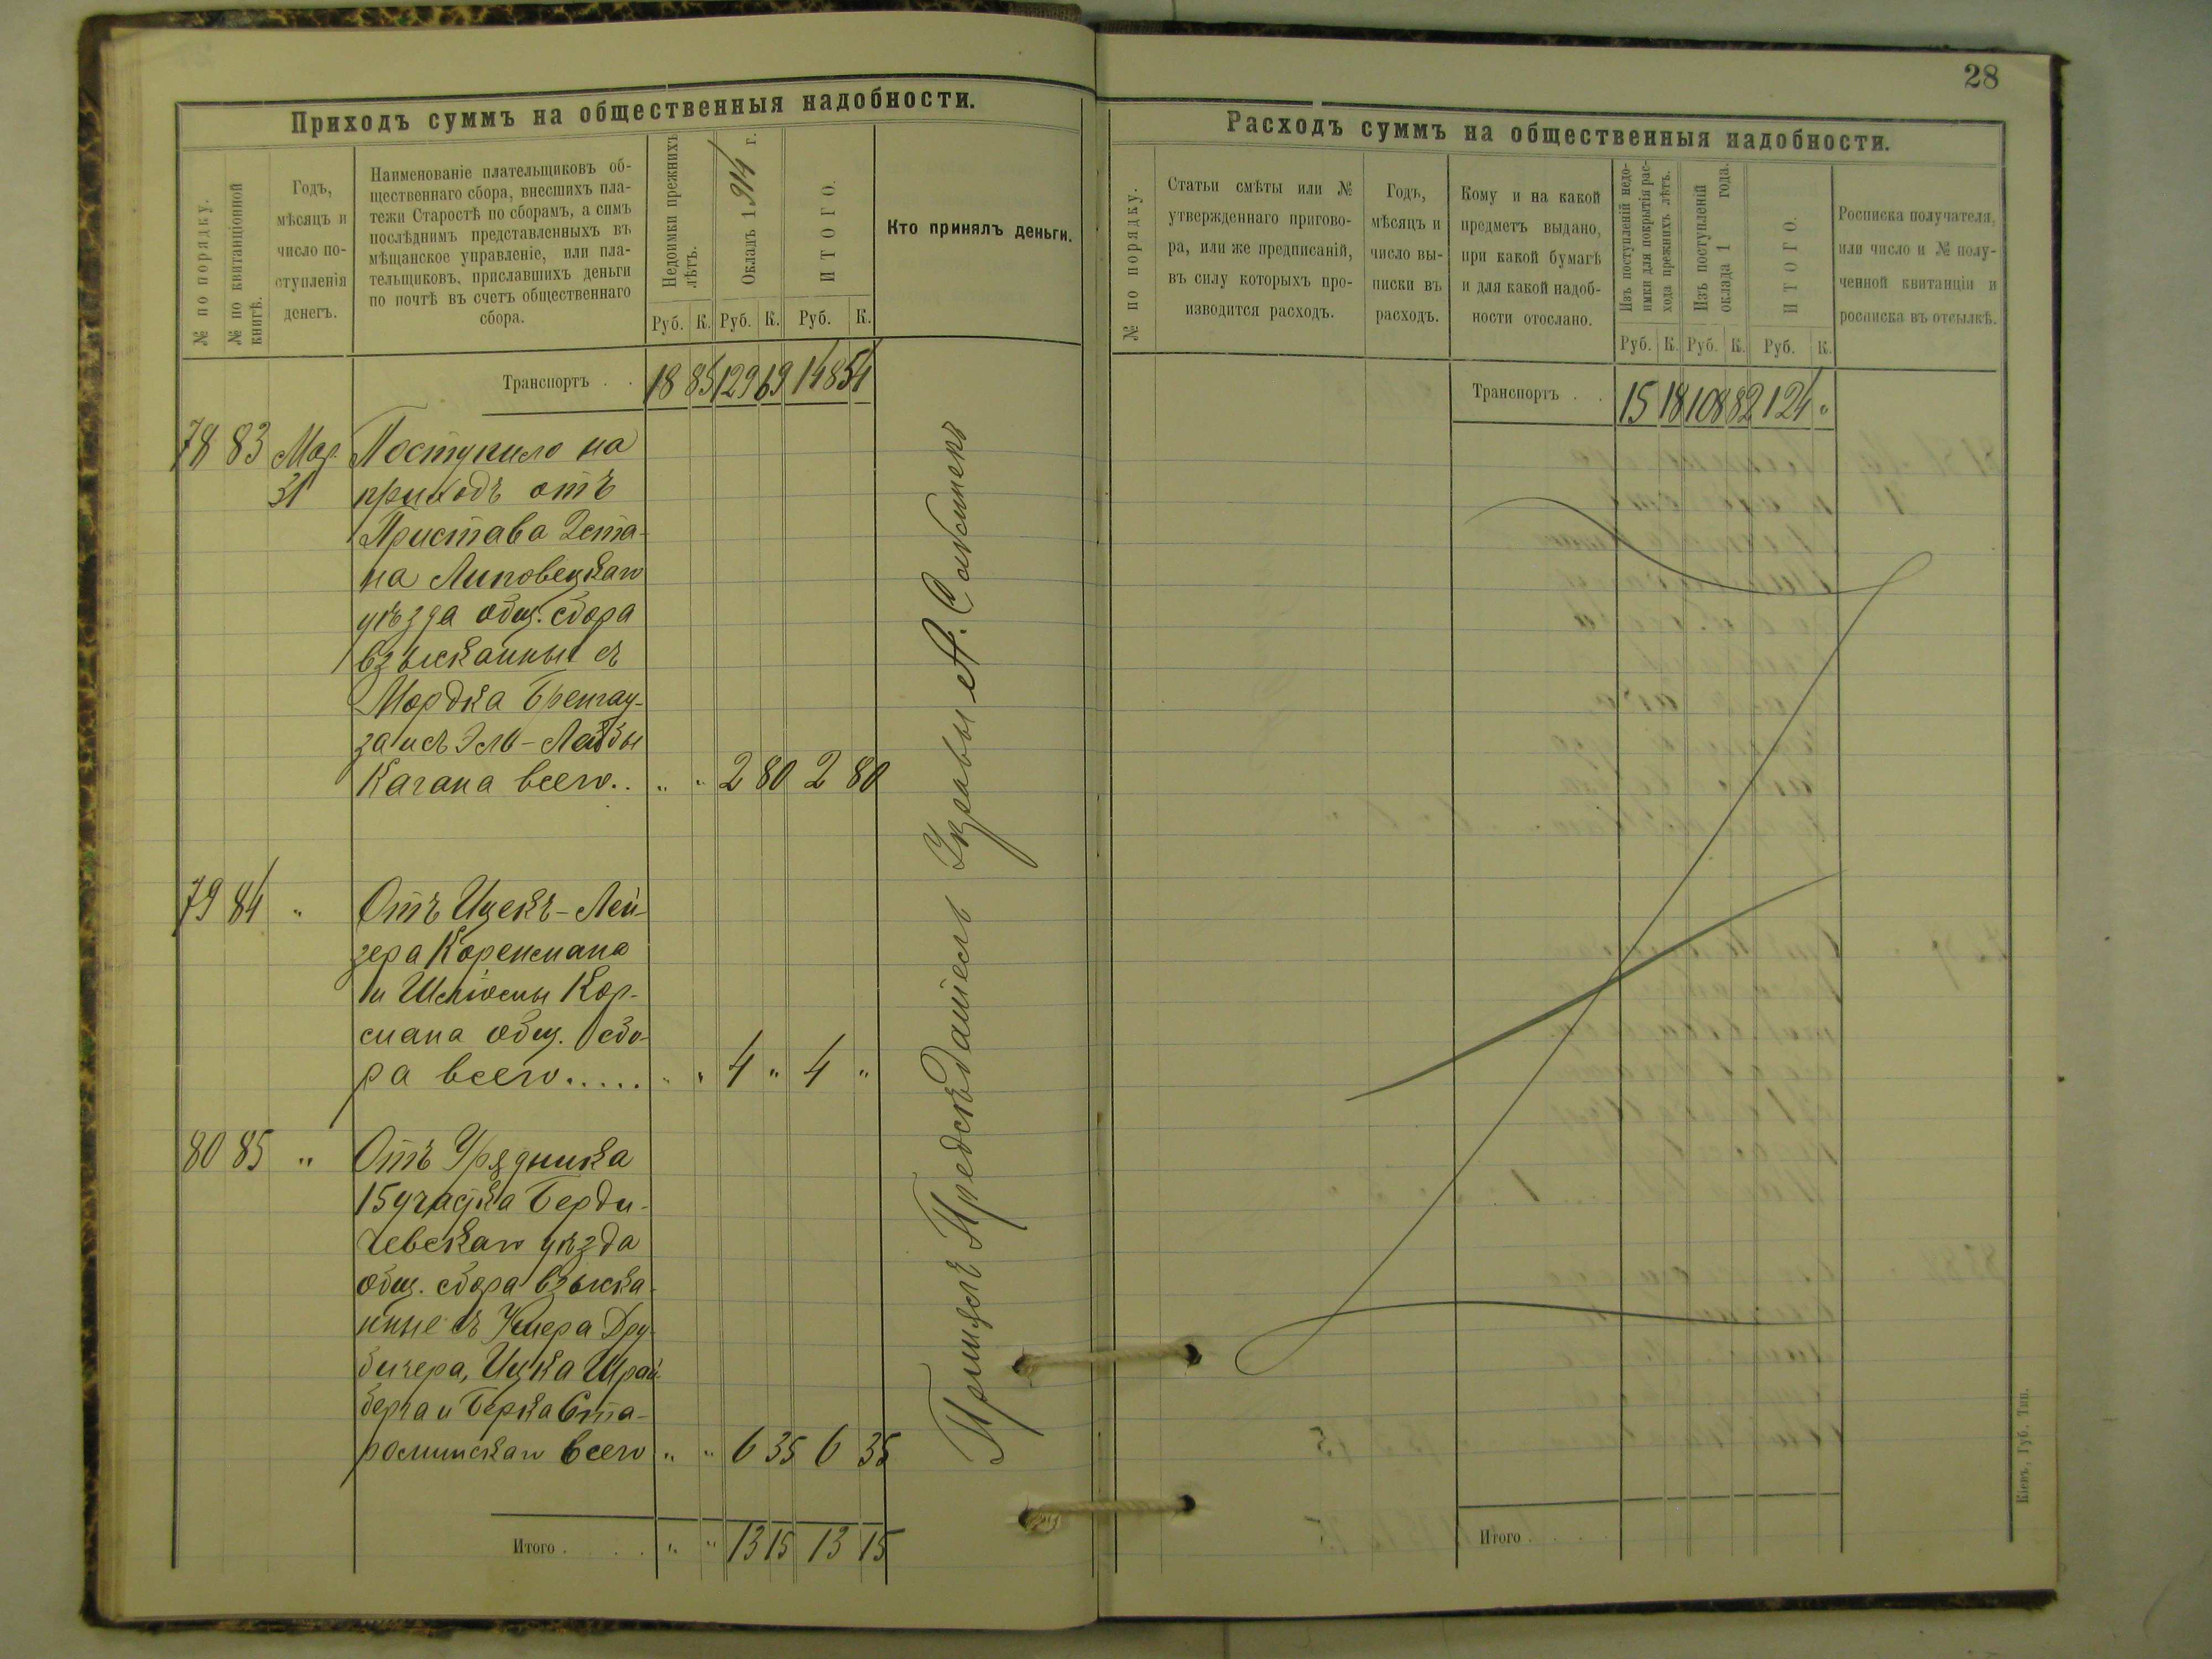 28
Приходъ суммъ на общественныя надобности.
№ по порядку.
№ по квитанціонной
книгѣ.
Годъ,
мѣсяцъ и
число по-
ступленія
денегъ.
Наименованіе плательщиковъ об-
щественнаго сбора, внесшихъ пла-
тежи Старостѣ по сборамъ, а симъ
послѣднимъ представленныхъ въ
мѣщанское управленіе, или пла-
тельщиковъ, приславшихъ деньги
по почтѣ въ счетъ общественнаго
сбора.
Недоимки прежнихъ
лѣтъ.
Окладъ 1914 г.
ИТОГО.
Кто принялъ деньги.
Руб. К. Руб. К. Руб. К.
Транспортъ . . 18 85 129 69 148 54
78 83 Мар. Поступило на
31 приходъ отъ
Пристава 2 ста-
на Липовецкаго
уѣзда общ. сбора
взысканныя съ
Мордка
за и съ Эль-Лейбы
Кагана всего . . „ „ 2 80 2 80
79 84 „ Отъ Ицекъ-Лей-
зера Коренмана
и Шліомы Кор-
смана общ. сбо-
ра всего . . . . . „ „ 4 „ 4 „
80 85 „ Отъ Урядника
15 участка Берди-
чевскаго уѣзда
общ. сбора взыска-
нные съ
Ицка Шрай-
берга и Берка Ста-
росминскаго всего „ „ 6 35 6 35
Итого . . . . . „ „ 13 15 13 15
Принялъ Предсѣдатель Управы А.
Расходъ суммъ на общественныя надобности.
№ по порядку.
Статьи смѣты или №
утвержденнаго пригово-
ра, или же предписаній,
въ силу которыхъ про-
изводится расходъ.
Годъ,
мѣсяцъ и
число вы-
писки въ
расходъ.
Кому и на какой
предметъ выдано,
при какой бумагѣ
и для какой надоб-
ности отослано.
Изъ поступленій недо-
имки для покрытія рас-
хода прежнихъ лѣтъ.
Изъ поступленій
оклада 1 года.
ИТОГО.
Росписка получателя,
или число и № полу-
ченной квитанціи и
росписка въ отсылкѣ.
Руб. К. Руб. К. Руб. К.
Транспортъ . . 15 18 108 82 124 „
Итого . . . .
Кіевъ, Губ. Тип.